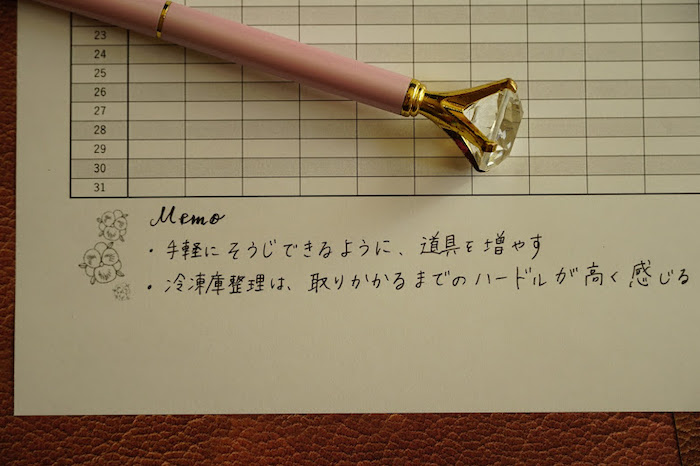 23
24
25
26
27
28
29
30
31
Memo
・手軽にそうじできるように、道具を増やす
・冷凍庫整理は、取りかかるまでのハードルが高く感じる